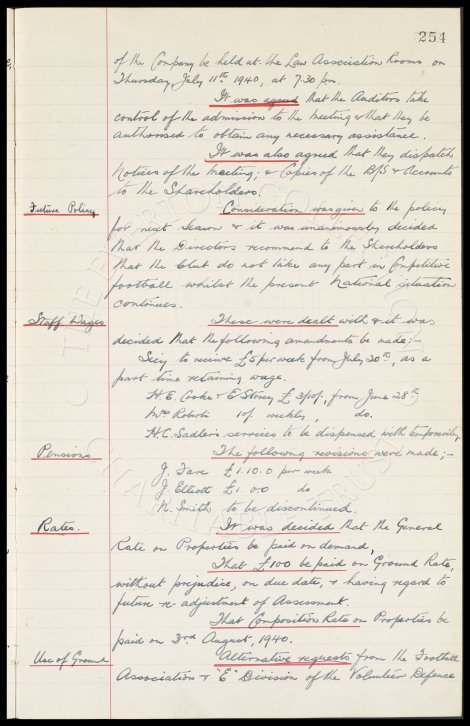 254
of the Company be held at the Law Association Rooms on
Thursday, July 11th 1940, at 7.30 p.m.
It was agreed that the Auditors take
control of the admissions to the meeting & that they be
authorised to obtain any necessary assistance.
It was also agreed that they dispatch
Notices of the meeting; & Copies of the B/S & Accounts
to the Shareholders.
Future Policy Consideration was given to the policy
for next season & it was unanimously decided
that the Directors recommend to the Shareholders
that the Club do not take any part in Competitive
football whilst the present National situation
continues.
Staff Wages These were dealt with & it was
decided that the following amendments be made:-
to receive £5 per week from July 20th, as a
part time retaining wage.
H.E. Cooke & E Storey £3/10/-, from June 28th
Mrs Roberts 10/- weekly, do.
H.C. Sadler's services to be dispensed with temporarily.
Pensions The following revisions were made;-
J. Fare £1.10.0 per week
J. Elliott £1.0.0 do
N. Smith to be discontinued.
Rates. It was decided that the General
Rate on Properties be paid on demand,
That £100 be paid on Ground Rate,
without prejudice, on due date, & having regard to
future re-adjustment of Assessment.
That Composition Rate on Properties be
paid on 3rd August, 1940.
Use of Ground Alternative requests from the Football
Association & "E" Division of the Volunteer Defence